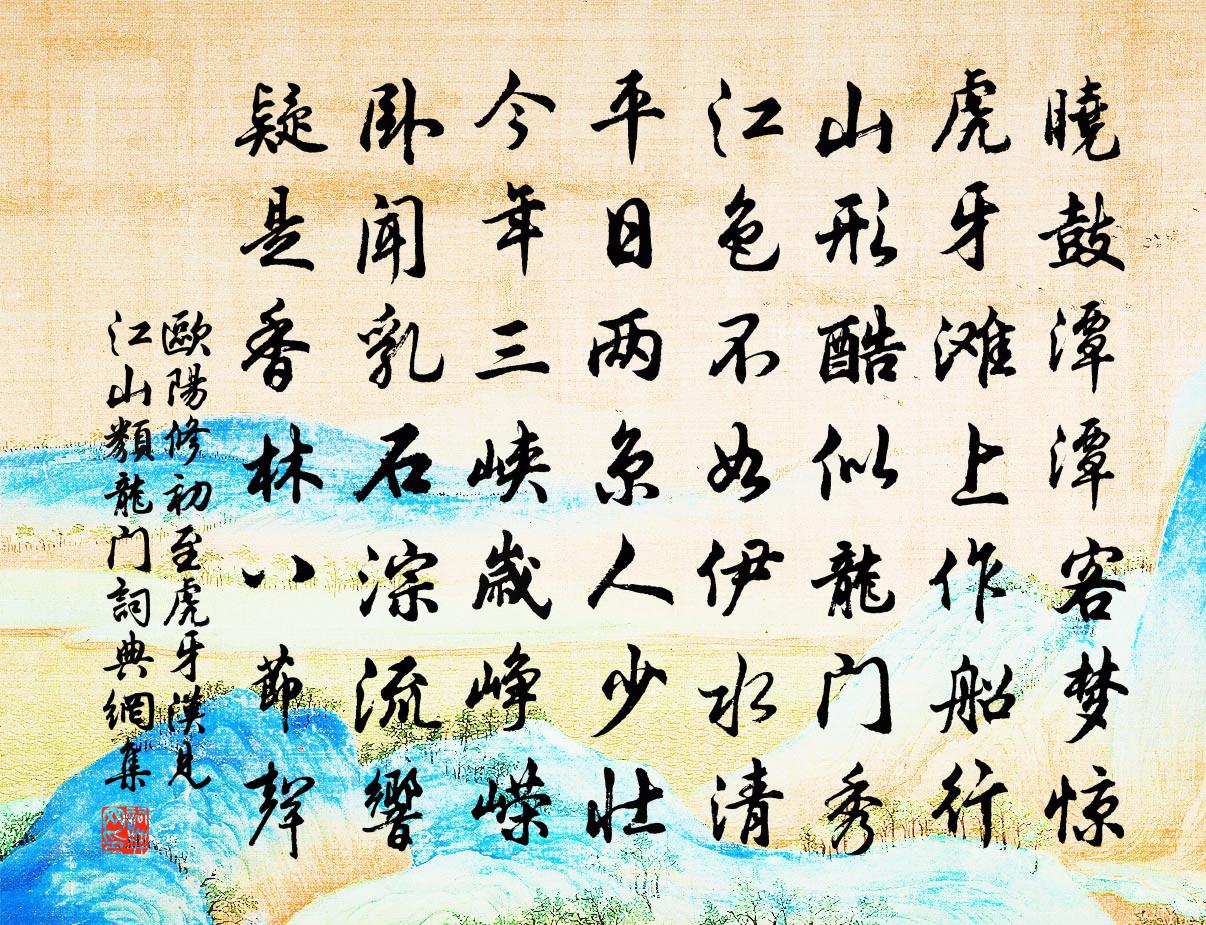 曉鼓潭潭客梦惊
虎牙滩上作船行
山形酷似龍门秀
江色不如伊水清
平日两京人少壮
今年三峡歳峥嵘
卧闻乳石淙流響
疑是香林八節聲
歐陽修初至虎牙滩見
江山類龍门詞典網集